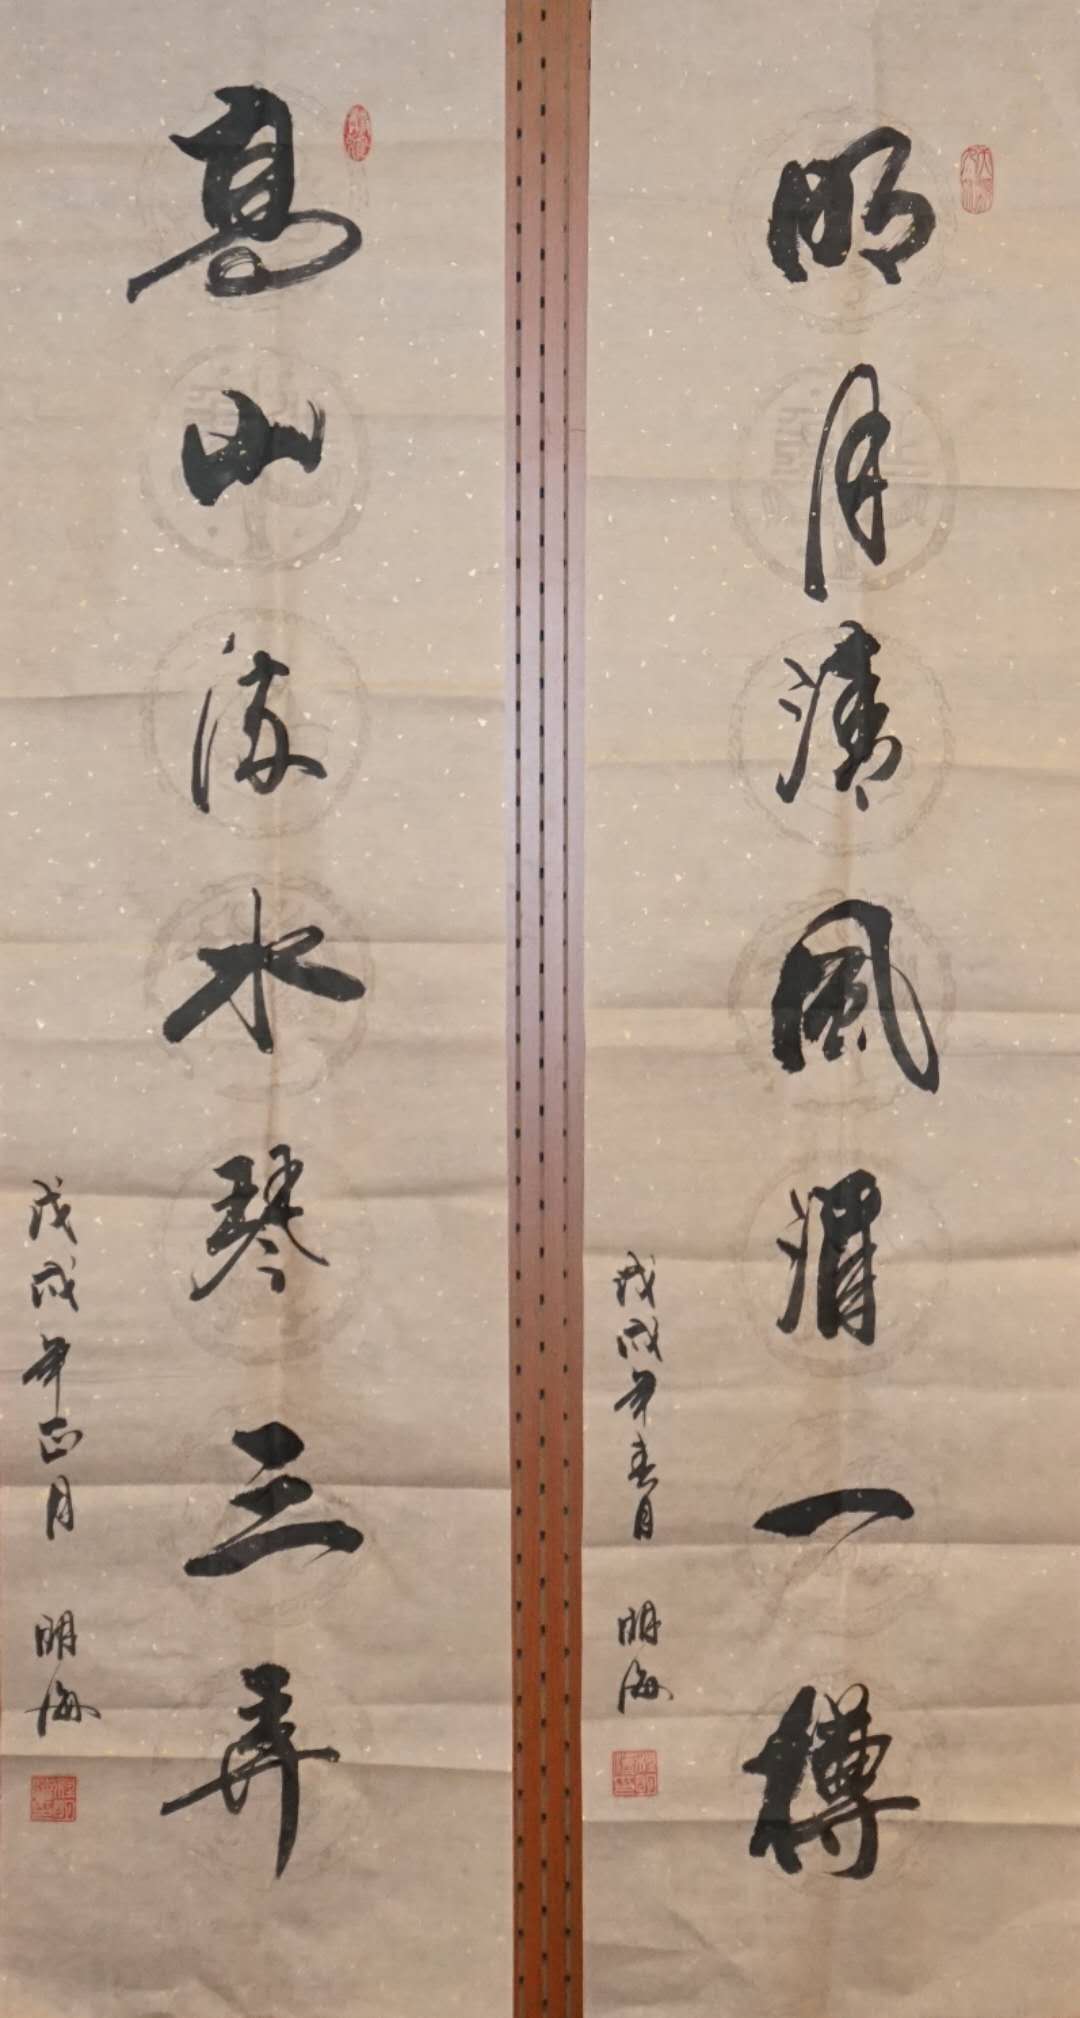 明月清风酒一樽
戊戌年春月 明海
高山流水琴三弄
戊戌年正月 明海